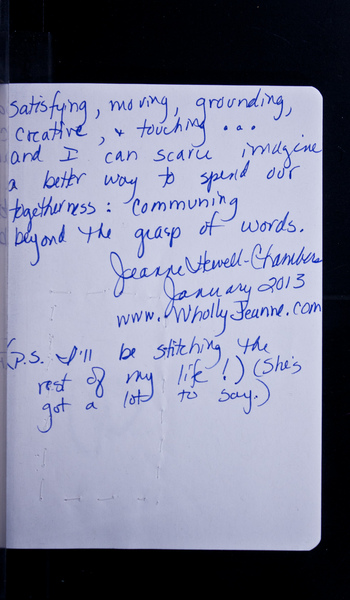 satisfying, moving, grounding,
creative, & touching ...
and I can scarce imagine
a better way to spend our
togetherness: communing
beyond the grasp of words.
Jeanne Hewell-Chambers
January 2013
www.WhollyJeanne.com
(P.S. I'll be stitching the
rest of my life!) (She's
got a lot to say.)